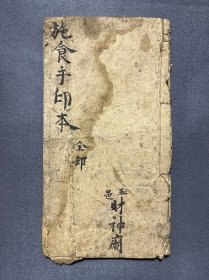 施食手印本
全部
五邑
財神廟